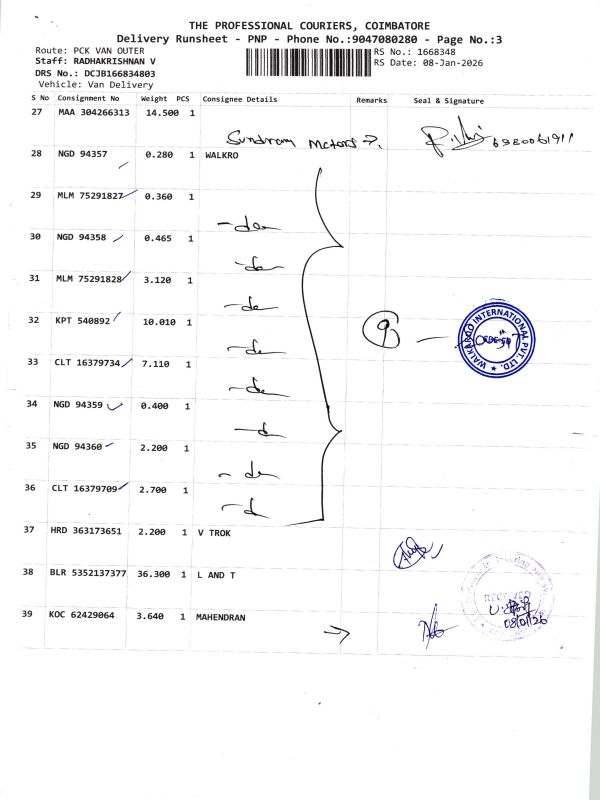 THE PROFESSIONAL COURIERS, COIMBATORE
Delivery Runsheet - PNP - Phone No.:9047080280 - Page No.:3
Route: PCK VAN OUTER
Staff: RADHAKRISHNAN V
DRS No.: DCJB166834803
Vehicle: Van Delivery
RS No.: 1668348
RS Date: 08-Jan-2026
S No Consignment No Weight PCS Consignee Details Remarks Seal & Signature
27 MAA 304266313 14.500 1
Sundram Motors
28 NGD 94357 0.280 1 WALKRO
29 MLM 75291827 0.360 1
30 NGD 94358 0.465 1
31 MLM 75291828 3.120 1
32 KPT 540892 10.010 1
33 CLT 16379734 7.110 1
34 NGD 94359 0.400 1
35 NGD 94360 2.200 1
36 CLT 16379709 2.700 1
9
WALKAROO INTERNATIONAL PVT. LTD.
37 HRD 363173651 2.200 1 V TROK
38 BLR 5352137377 36.300 1 L AND T
RECEIVED
08/01/26
39 KOC 62429064 3.640 1 MAHENDRAN